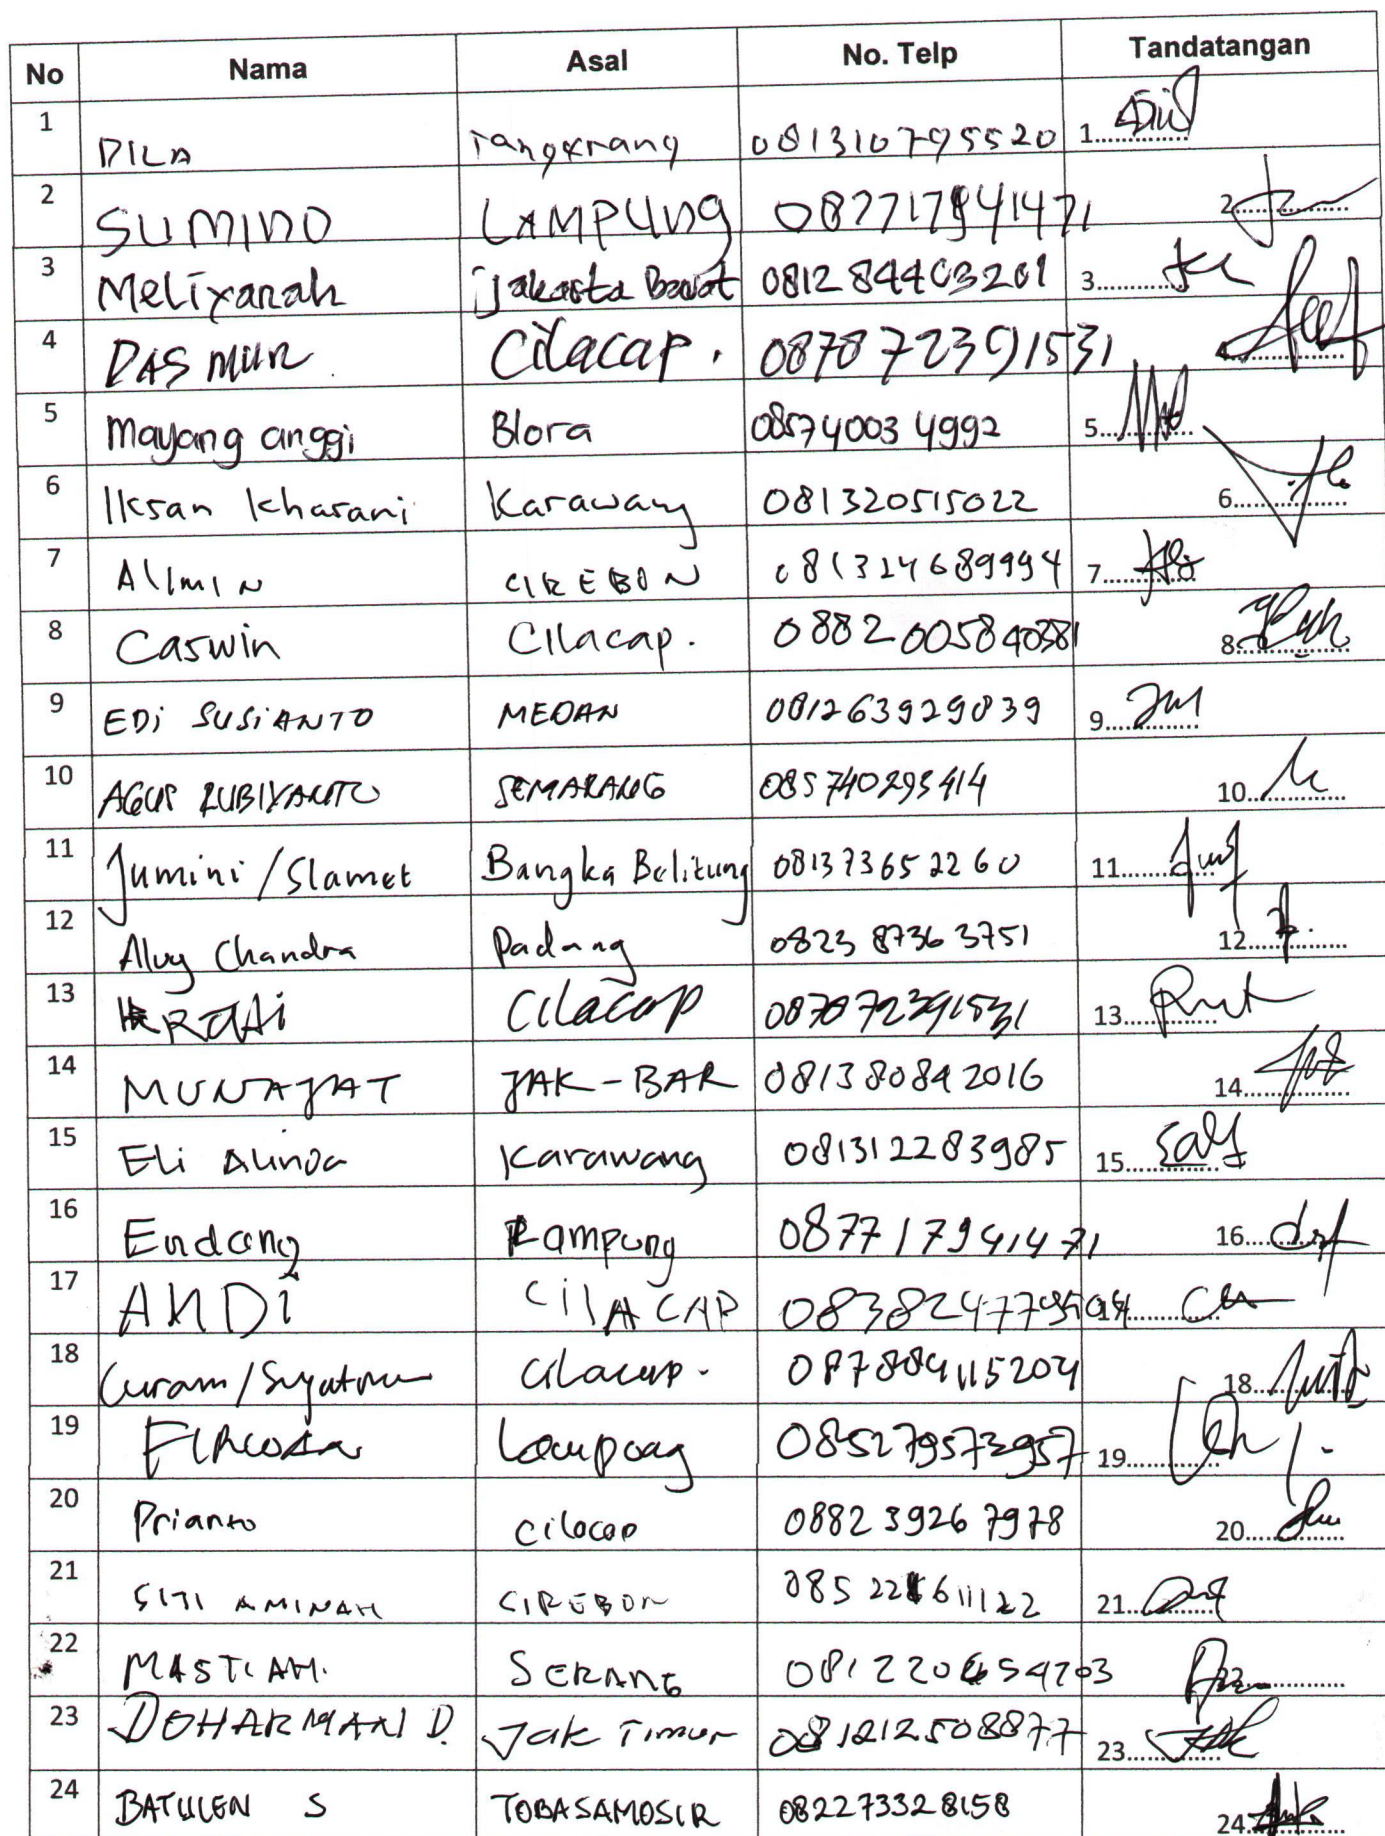 No Nama Asal No. Telp Tandatangan
1 DILA Tangerang 081310795520 1
2 SUMINO LAMPUNG 087717941471 2
3 Meliyanah jakarta Barat 081284403201 3
4 DASMUN Cilacap. 0878 72391531 4
5 Mayang anggi Blora 085740034992 5
6 Iksan kharani Karawang 081320515022 6
7 Alimin CIREBON 081324689994 7
8 Caswin Cilacap. 0882 005840381 8
9 EDi SUSiANTO MEDAN 081263929839 9
10 AGUS RUBIYANTO SEMARANG 085740293414 10
11 Jumini/Slamet Bangka Belitung 081373652260 11
12 Chandra Padang 0823 8736 3751 12
13 Cilacap 087872391531 13
14 MUNAJAT JAK-BAR 081380842016 14
15 Eli Alinda Karawang 081312283985 15
16 Endang Lampung 087717941471 16
17 ANDi CilACAP
18 Cilacap. 087884115204 18
19 Lampung 085279573957 19
20 Prianto Cilacap 0882 3926 7978 20
21 SITI AMINAH CIREBON 21
22 MASTIAH. SERANG 22
23 DOHARMAN D. Jak Timur 081212508877 23
24 BATULEN S TOBASAMOSIR 082273328158 24